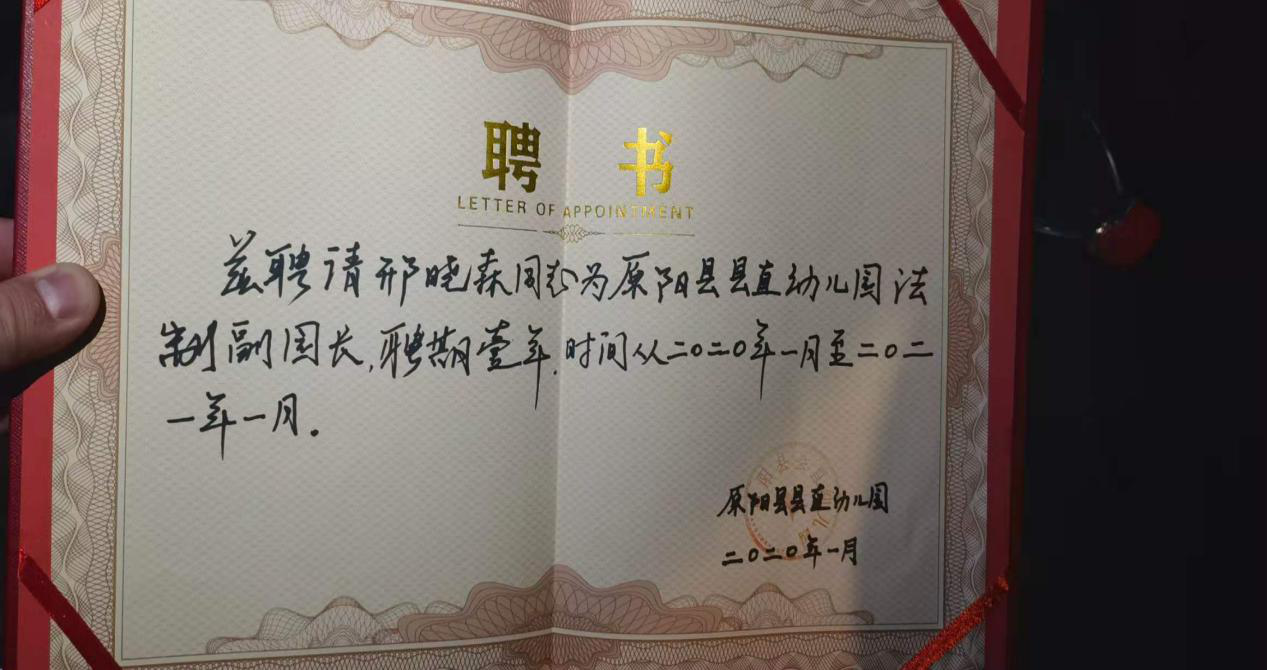 聘书
LETTER OF APPOINTMENT
兹聘请邢晓森同志为原阳县县直幼儿园法
制副园长,聘期壹年.时间从二〇二〇年一月至二〇二
一年一月.
原阳县县直幼儿园
二〇二〇年一月